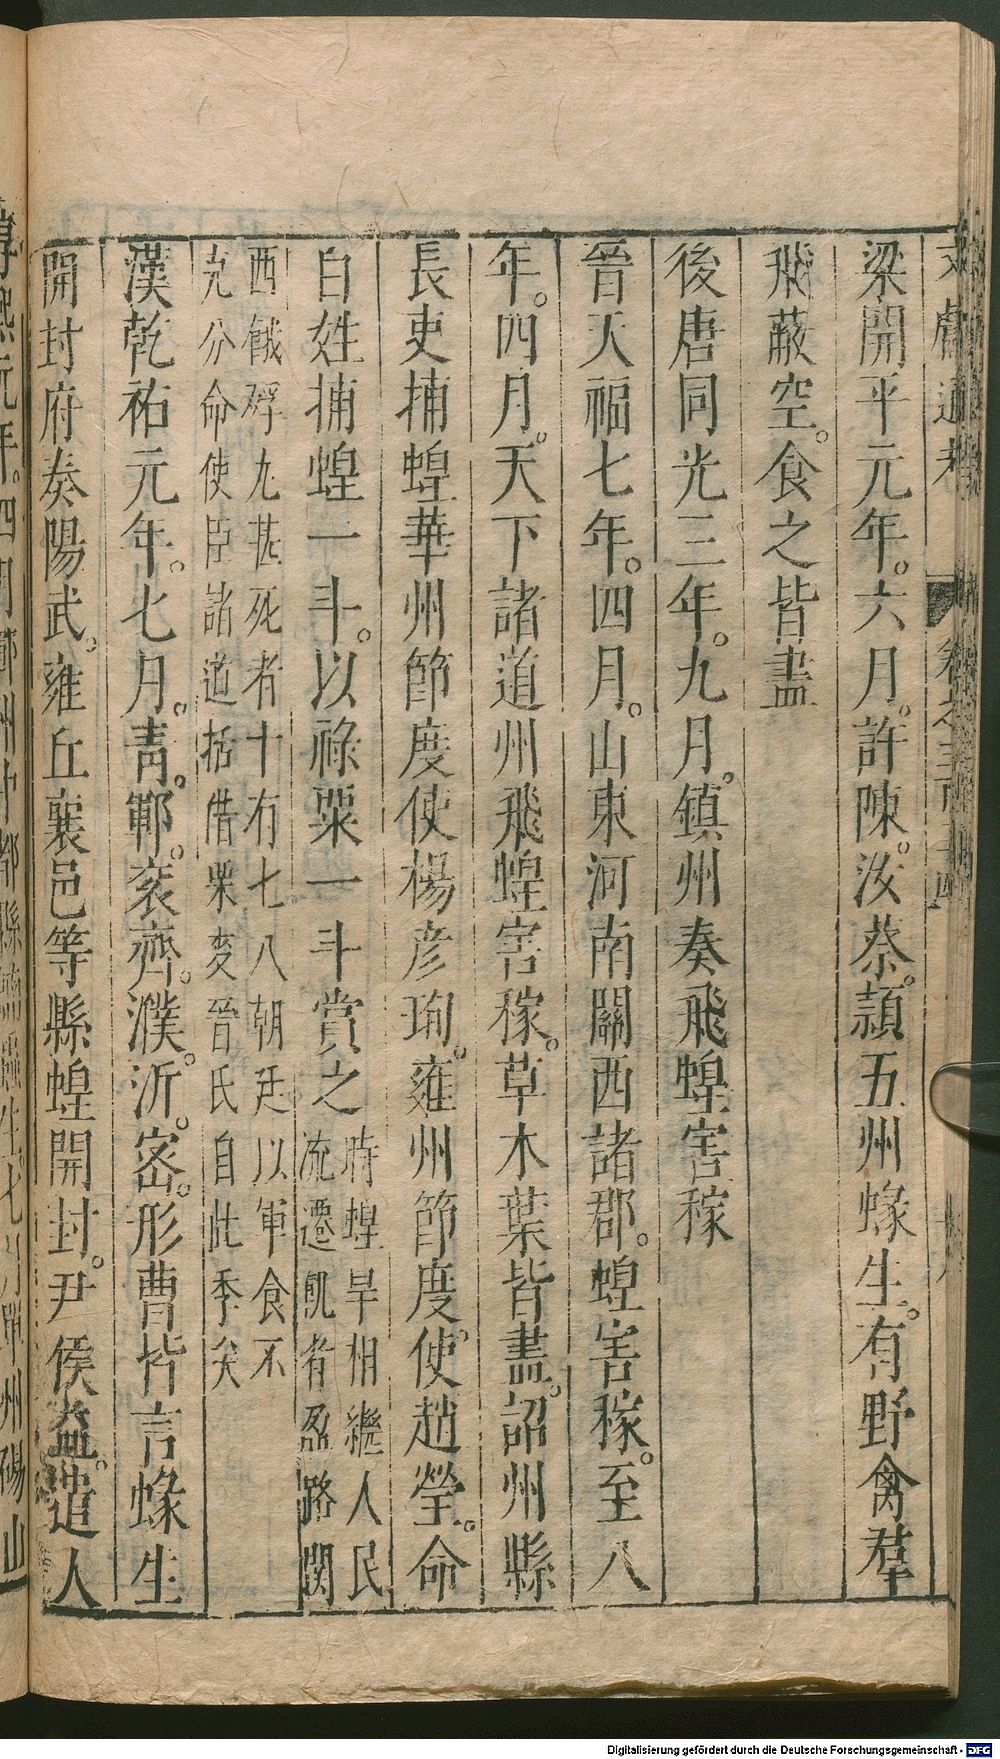 文獻通考 卷之三百十四
梁開平元年。六月。許陳。汝蔡。潁五州蝝生。有野禽羣
飛蔽空。食之皆盡
後唐同光三年。九月。鎮州奏飛蝗害稼
晉天福七年。四月。山東河南關西諸郡。蝗害稼。至八
年。四月。天下諸道州飛蝗害稼。草木葉皆盡。詔州縣
長吏捕蝗華州節度使楊彦珣。雍州節度使。趙瑩。命
百姓捕蝗一斗。以祿粟一斗賞之
時蝗旱相繼人民
流遷飢者盈路関
西餓殍尤甚死者十有七八朝廷以軍食不
充分命使臣諸道括借粟麥晉氏自此季矣
漢乾祐元年。七月。靑。鄆。兖齊。濮。沂。密。邢曹皆言蝝生
開封府奏陽武。雍丘襄邑等縣蝗開封。尹侯益。遣人
Digitalisierung gefördert durch die Deutsche Forschungsgemeinschaft - DFG